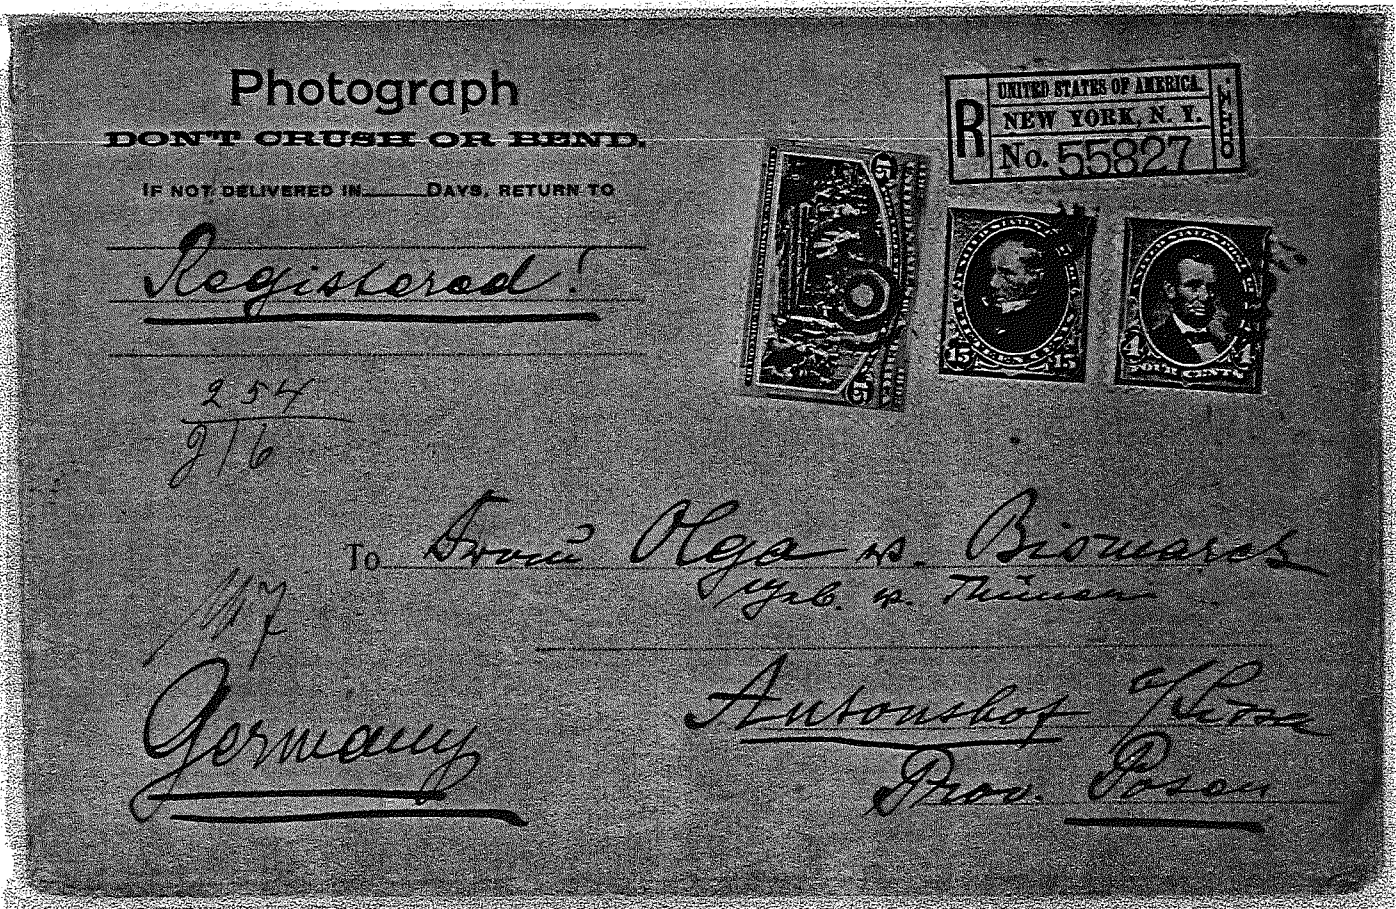 Photograph
DON'T CRUSH OR BEND.
IF NOT DELIVERED IN DAYS, RETURN TO
Registered!
254
216
UNITED STATES OF AMERICA.
R NEW YORK, N. Y.
No. 55827
5 5
15 15
4 4
FOUR CENTS
To Frau Olga v. Bismarck
geb. v. Thümen
Antonshof
Germany
Prov. Posen